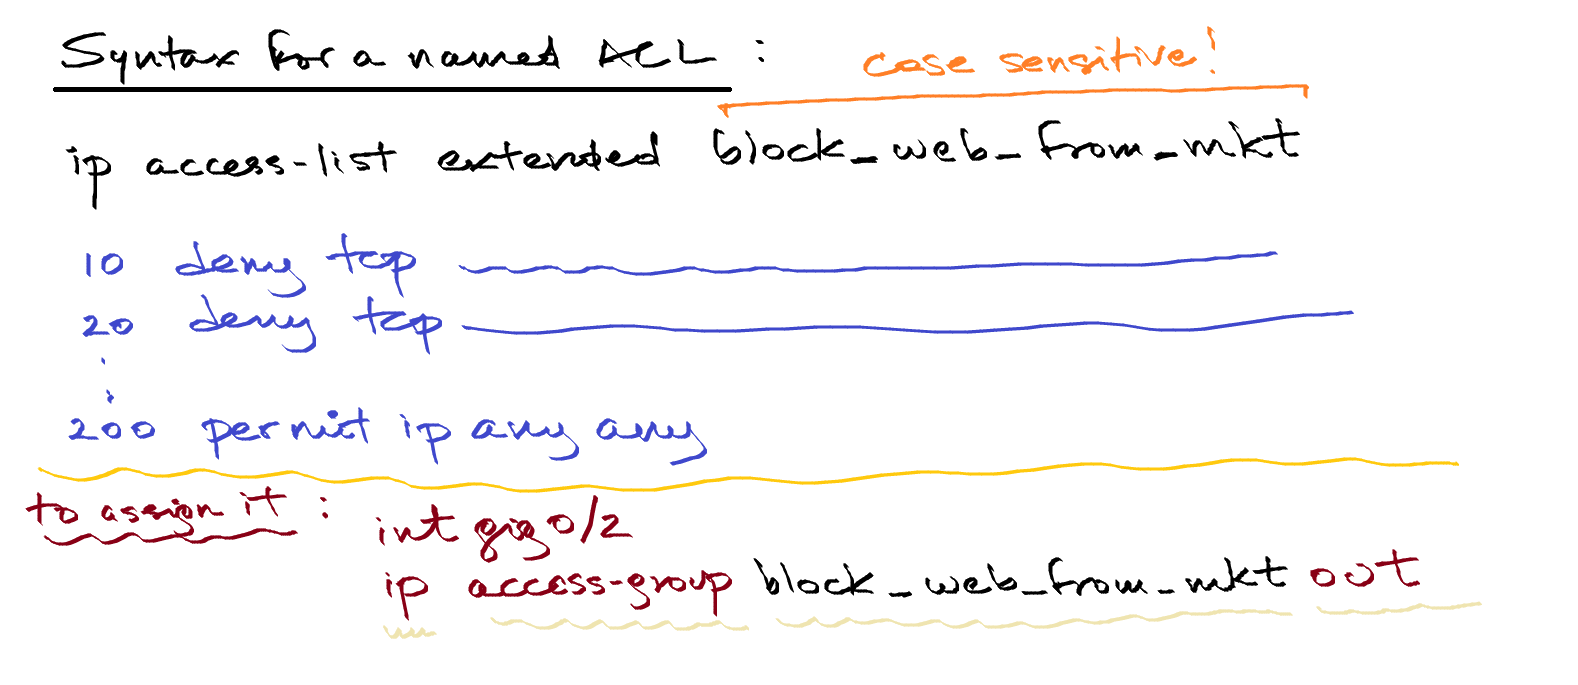 Syntax for a named ACL :
case sensitive!
ip access-list extended block_web_from_mkt
10 deny tcp
20 deny tcp
200 permit ip any any
to assign it :
int gig 0/2
ip access-group block_web_from_mkt out